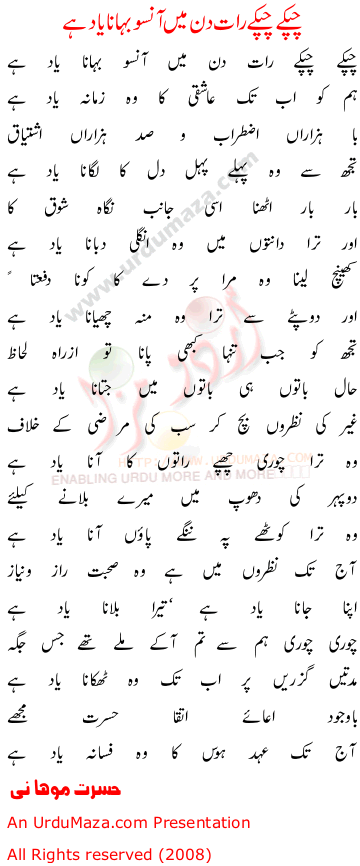 چپکے چپکے رات دن میں آنسو بہانا یاد ہے
چپکے چپکے رات دن میں آنسو بہانا یاد ہے
ہم کو اب تک عاشقی کا وہ زمانہ یاد ہے
با ہزاراں اضطراب و صد ہزاراں اشتیاق
تجھ سے وہ پہلے پہل دل کا لگانا یاد ہے
بار بار اٹھنا اسی جانب نگاہ شوق کا
اور ترا دانتوں میں وہ انگلی دبانا یاد ہے
کھینچ لینا وہ مرا پر دے کا کونا دفعتاً
اور دوپٹے سے ترا وہ منہ چھپانا یاد ہے
تجھ کو جب تنہا کبھی پانا تو ازراہ لحاظ
حال باتوں ہی باتوں میں جتانا یاد ہے
غیر کی نظروں بچ کر سب کی مر ضی کے خلاف
وہ ترا چوری چھپے راتوں کا آنا یاد ہے
دوپہر کی دھوپ میں میرے بلانے کیلئے
وہ ترا کوٹھے پہ ننگے پاؤں آنا یاد ہے
آج تک نظروں میں ہے وہ صحبت راز ونیاز
اپنا جانا یاد ہے ‘تیرا بلانا یاد ہے
چوری چوری ہم سے تم آکے ملے تھے جس جگہ
مدتیں گزریں پر اب تک وہ ٹھکانا یاد ہے
باوجود ادعائے اتقا حسرت مجھے
آج تک عہد ہوس کا وہ فسانہ یاد ہے
حسرت موھا نی
An UrduMaza.com Presentation
All Rights reserved (2008)
www.urdumaza.com
اردو مزا
HTTP://WWW.URDUMAZA.COM
ENABLING URDU MORE AND MORE......